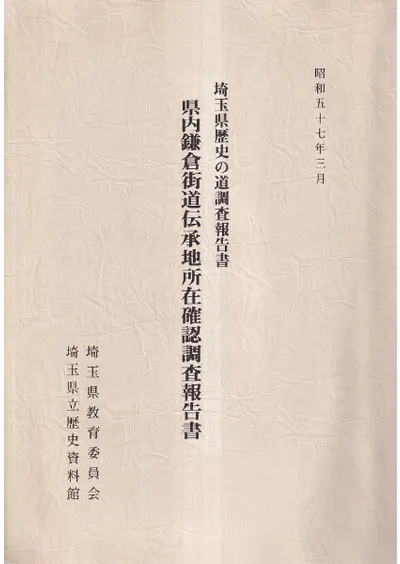 昭和五十七年三月
埼玉県歴史の道調査報告書
県内鎌倉街道伝承地所在確認調査報告書
埼玉県教育委員会
埼玉県立歴史資料館